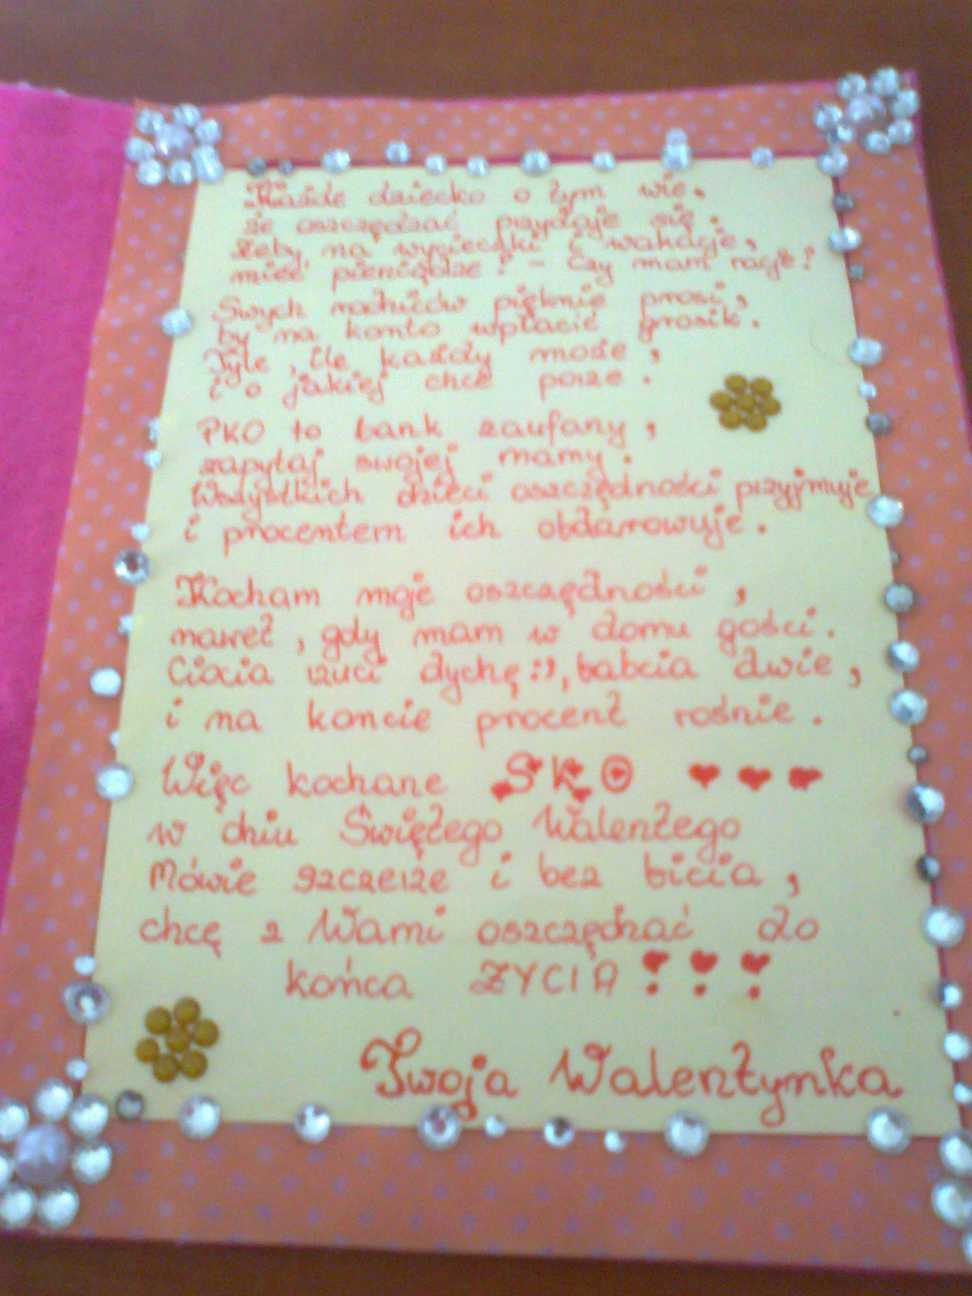 Każde dziecko o tym wie,
że oszczędzać przydaje się.
Żeby na wycieczki i wakacje,
mieć pieniądze! - Czy mam rację?
Swych rodziców pięknie prosi,
by na konto wpłacić grosik.
Tyle, ile każdy może,
i o jakiej chce porze.
PKO to bank zaufany,
zapytaj swojej mamy.
Wszystkich dzieci oszczędności przyjmuje
i procentem ich obdarowuje.
Kocham moje oszczędności,
nawet, gdy mam w domu gości.
Ciocia rzuci dychę :), babcia dwie,
i na koncie procent rośnie.
Więc kochane SKO ♥ ♥ ♥
w dniu Świętego Walentego
Mówie szczerze i bez bicia,
chcę z Wami oszczędzać do
końca ŻYCIA !!!
Twoja Walentynka